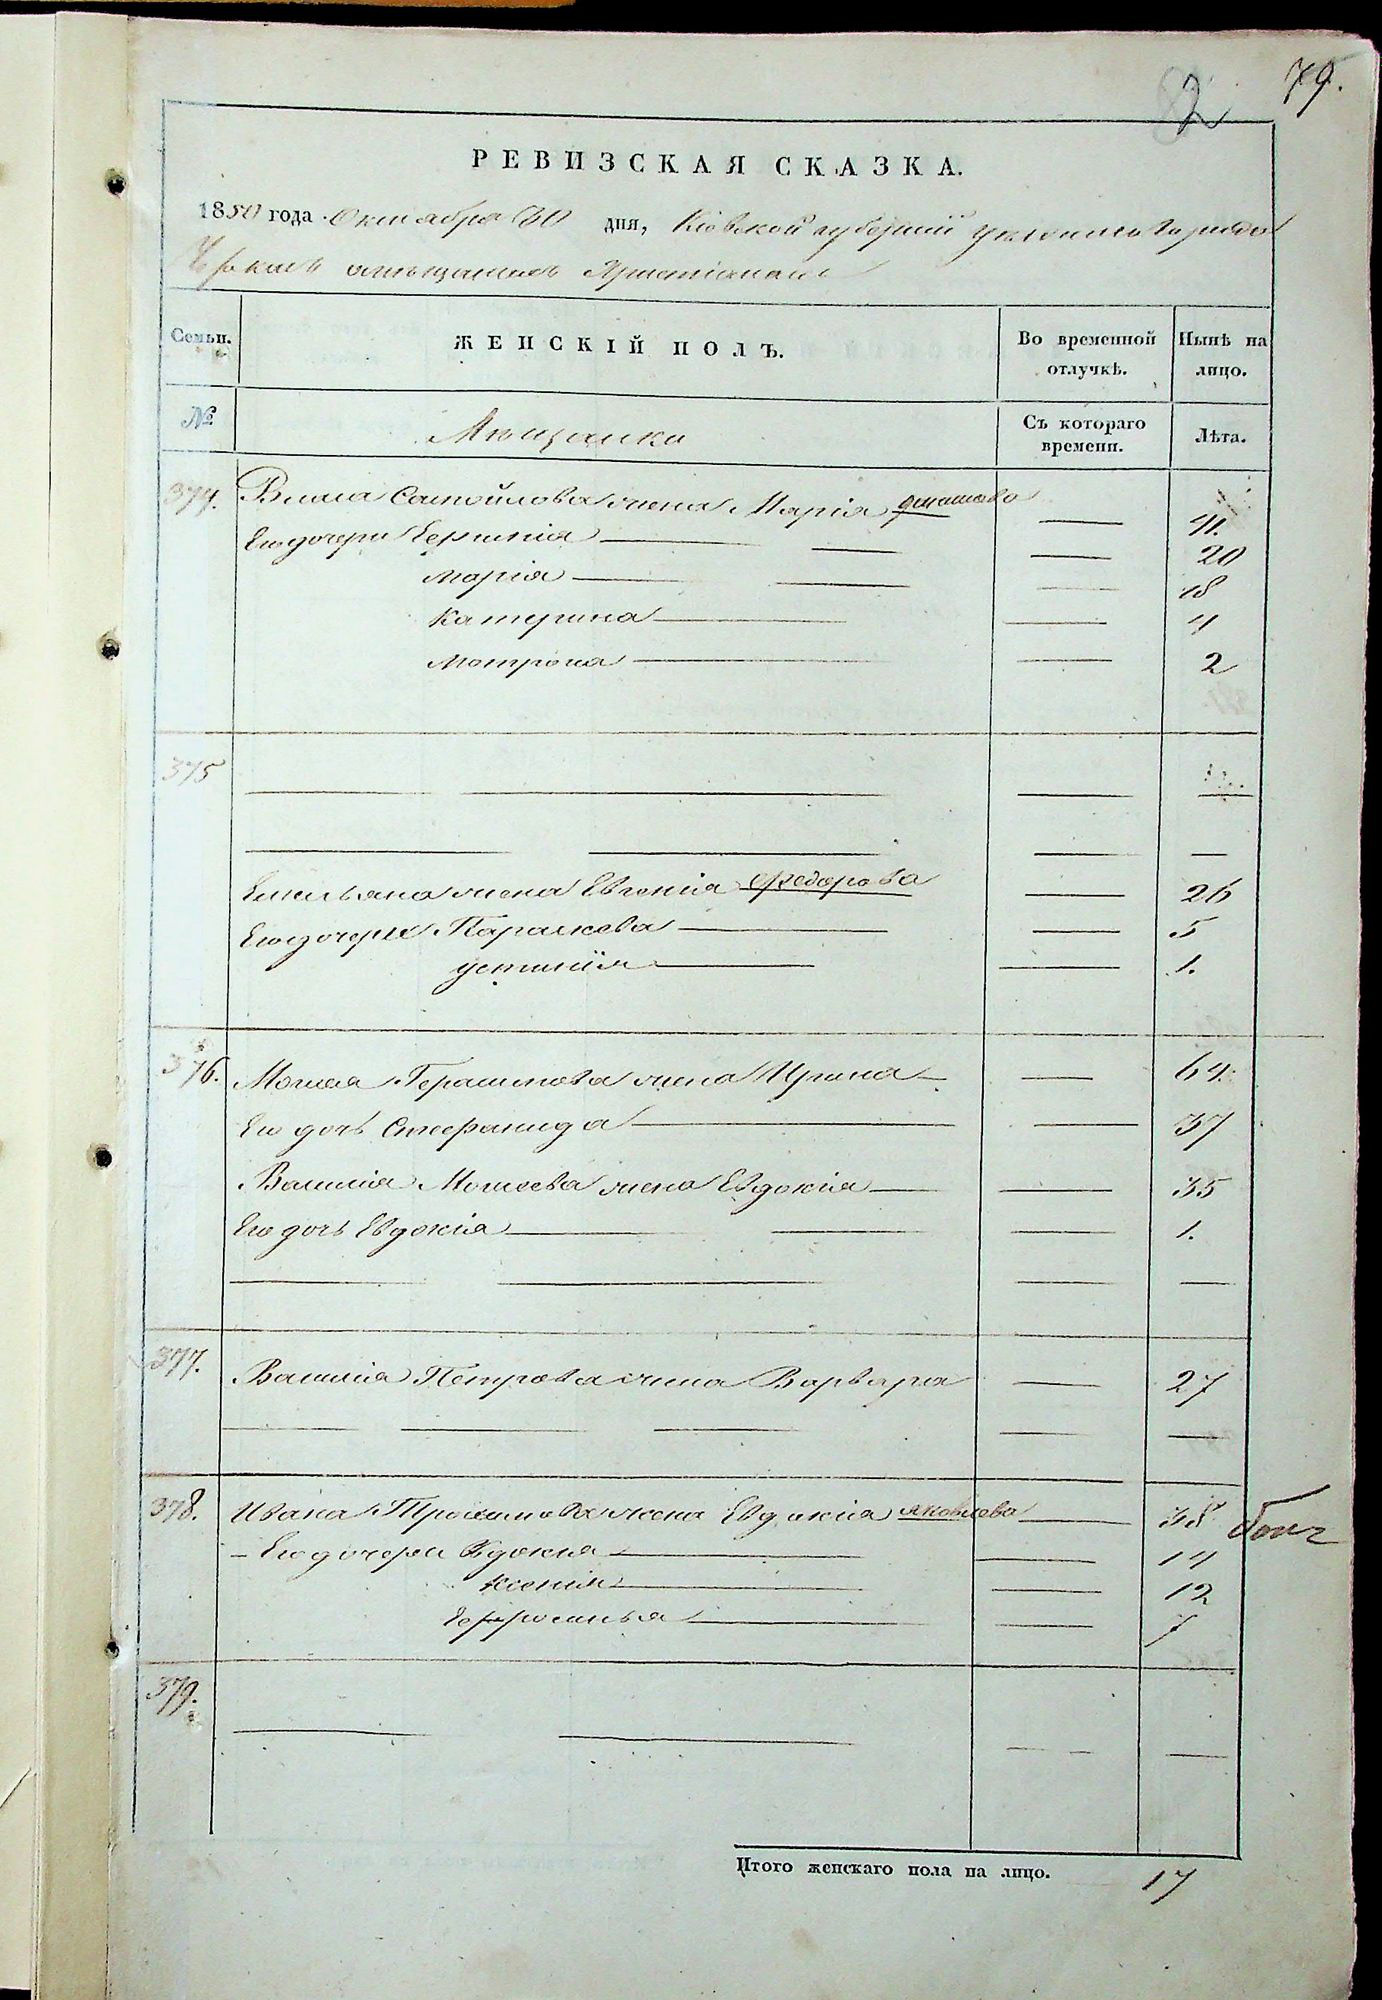 79.
2
РЕВИЗСКАЯ СКАЗКА.
1850 года Октября 30 дня, Кіевской губерніи уезднаго города
Черкасъ омещанахъ Христіанахъ
Семьи. ЖЕНСКІЙ ПОЛЪ. Во временной отлучкѣ. Нынѣ на лицо.
№ Мещанки Съ котораго времени. Лѣта.
374. Власа Самойлова жена Марія 41.
Его дочери 20
Марія 18
Катерина 4
Мотрона 2
375
Емельяна жена Евгенія Федорова 26
Его дочери Параскева 5
устинія 1.
376. Мосея Герасимова жена Ирина 64.
Его дочь Стефанида 37
Василія Мосеева жена Евдокія 35
Его дочь Евдокія 1.
377. Василія Петрова жена Варвара 27
378. Ивана Трофимова жена Евдокія яковлева 38
Его дочери Вдокия 14
Ксенія 12
Ефросинья 7
379.
Итого женскаго пола на лицо. 17